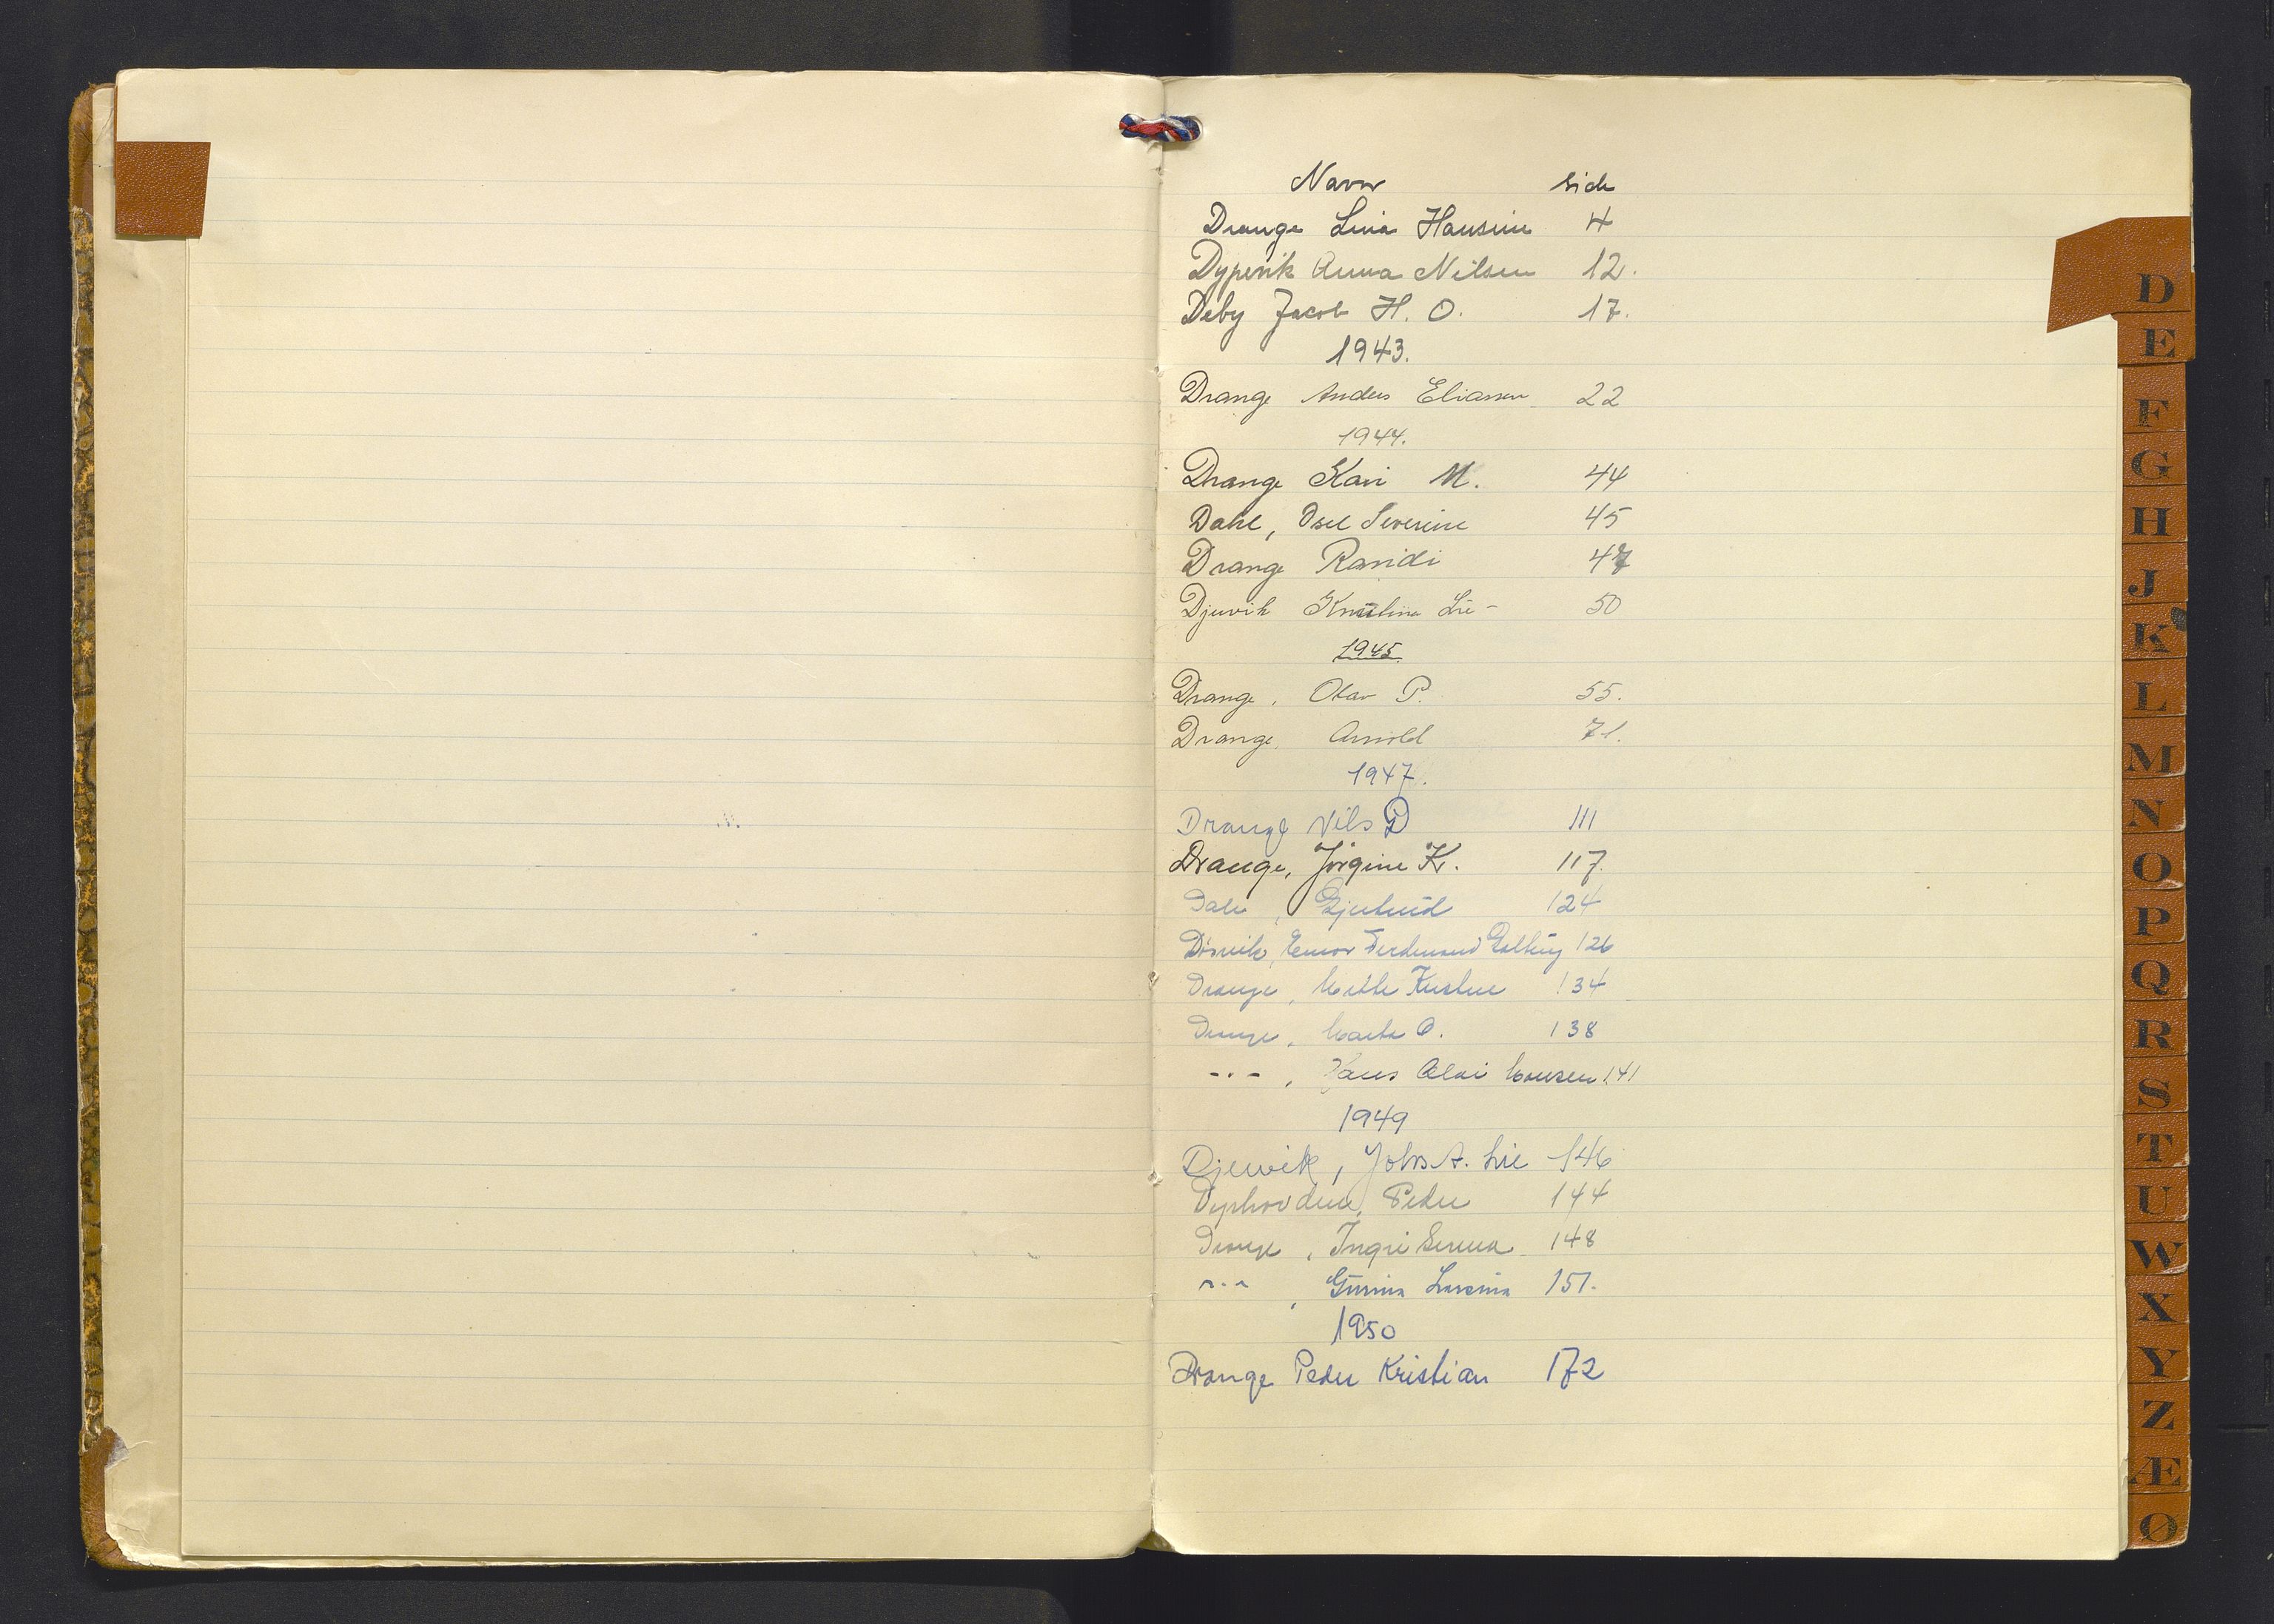 Navn side
Drange Lina Hansine 4
Dypevik Anna Nilsen 12.
Deby Jacob H. O. 17.
1943.
Drange Anders Eliassen 22
1944.
Drange Kari M. 44
Dahl, Severine 45
Drange Randi 47
Djuvik Knutline Lie - 50
1945.
Drange, Olav P. 55.
Drange, Arnold 71.
1947.
Drange Nils D 111
Drange, Jörgine K. 117.
Dale, Gjertrud 124
Ferdinand 126
Drange, Kristine 134
Drange, O. 138
-..- , Hans Olai 141
1949
Djuvik, Johs A. Lie 146
Dyphovden, Peder 144
Drange, Ingri Serina 148
-..- , Gurina Larsina 151.
1950
Drange Peder Kristian 172
D
E
F
G
H
J
K
L
M
N
O
P
Q
R
S
T
U
W
X
Y
Z
Æ
Ø